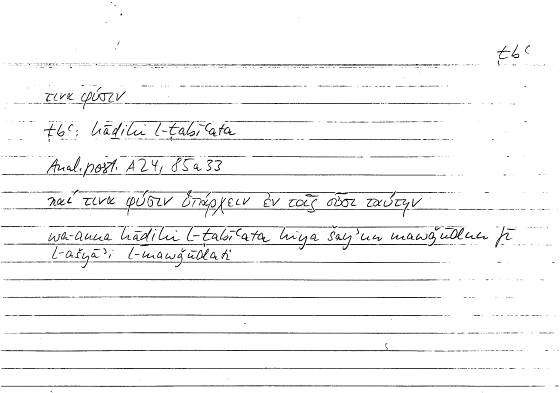 ṭbʿ
τινα φύσιν
ṭbʿ: hāḏihi l-ṭabīʿata
Anal. post. A 24, 85a33
καί τινα φύσιν ὑπάρχειν ἐν τοῖς οὖσι ταύτην
wa-anna hāḏihi l-ṭabīʿata hiya šayʾun mawǧūdun fī
l-ašyāʾi l-mawǧūdati